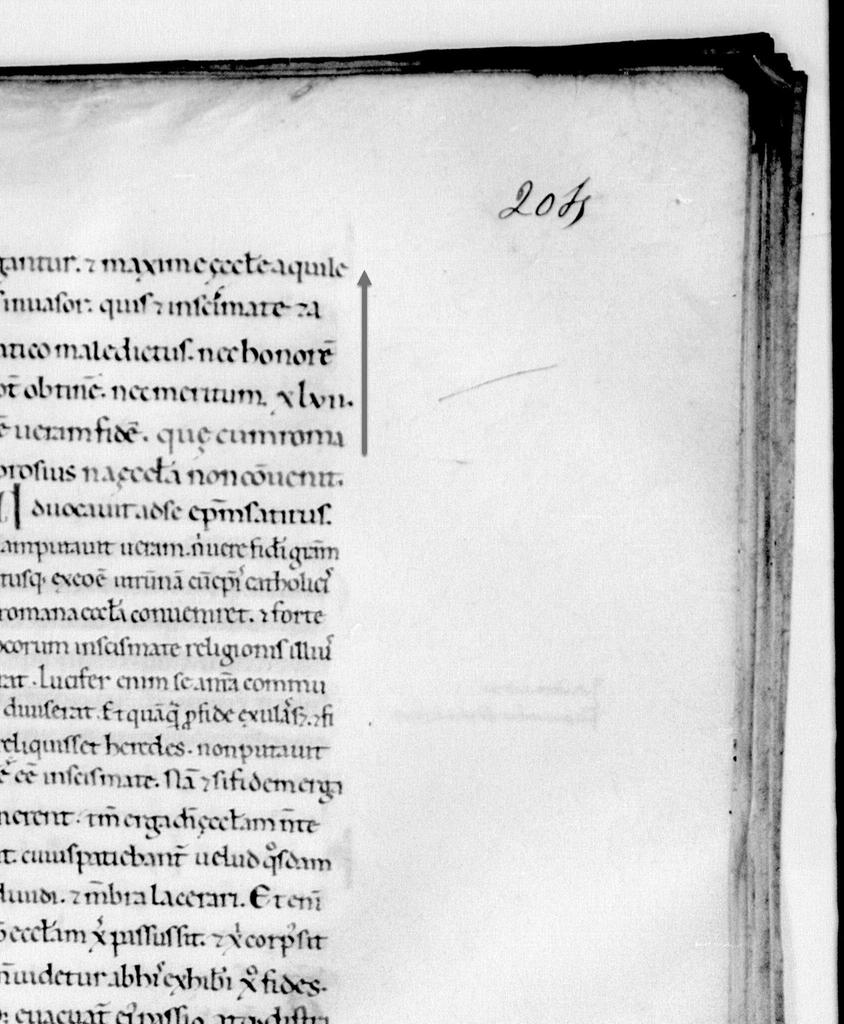 204
gantur. ⁊ maxime ęccłe aquile
inuasor. quis ⁊ inscismate ⁊a
atico maledictus. nec honorē
ot̄ obtinē. nec meritum. xlvii.
ē ueram fidē. quę cum roma
brosius na ęccła non cōuenit.
duocauit ad se ep̄m satirus.
amputauit ueram. n̄ uere fidi gr̄am
romana eccła conueniret. ⁊ forte
ocorum inscismate religionis illiuˀ
rat. Lucifer enim se a nr̄a commu
diuiserat. Et quāq̄ ꝓ fide exulaſſꝫ. ⁊ fi
reliquisset heredes. non putauit
ē eē inscismate. Nā ⁊ si fidem erga
nerent. tm̄ erga dī ęccłam n̄ te
t. cuius patiebant̄ uelud q̊sdam
diuidi. ⁊ m̄bra lacerari. Etenī
ecctam xp̄ passus sit. ⁊ xp̄ı corpˀ sit
n̄ uidetur ab hiˀ exhiberi xp̊ fides.